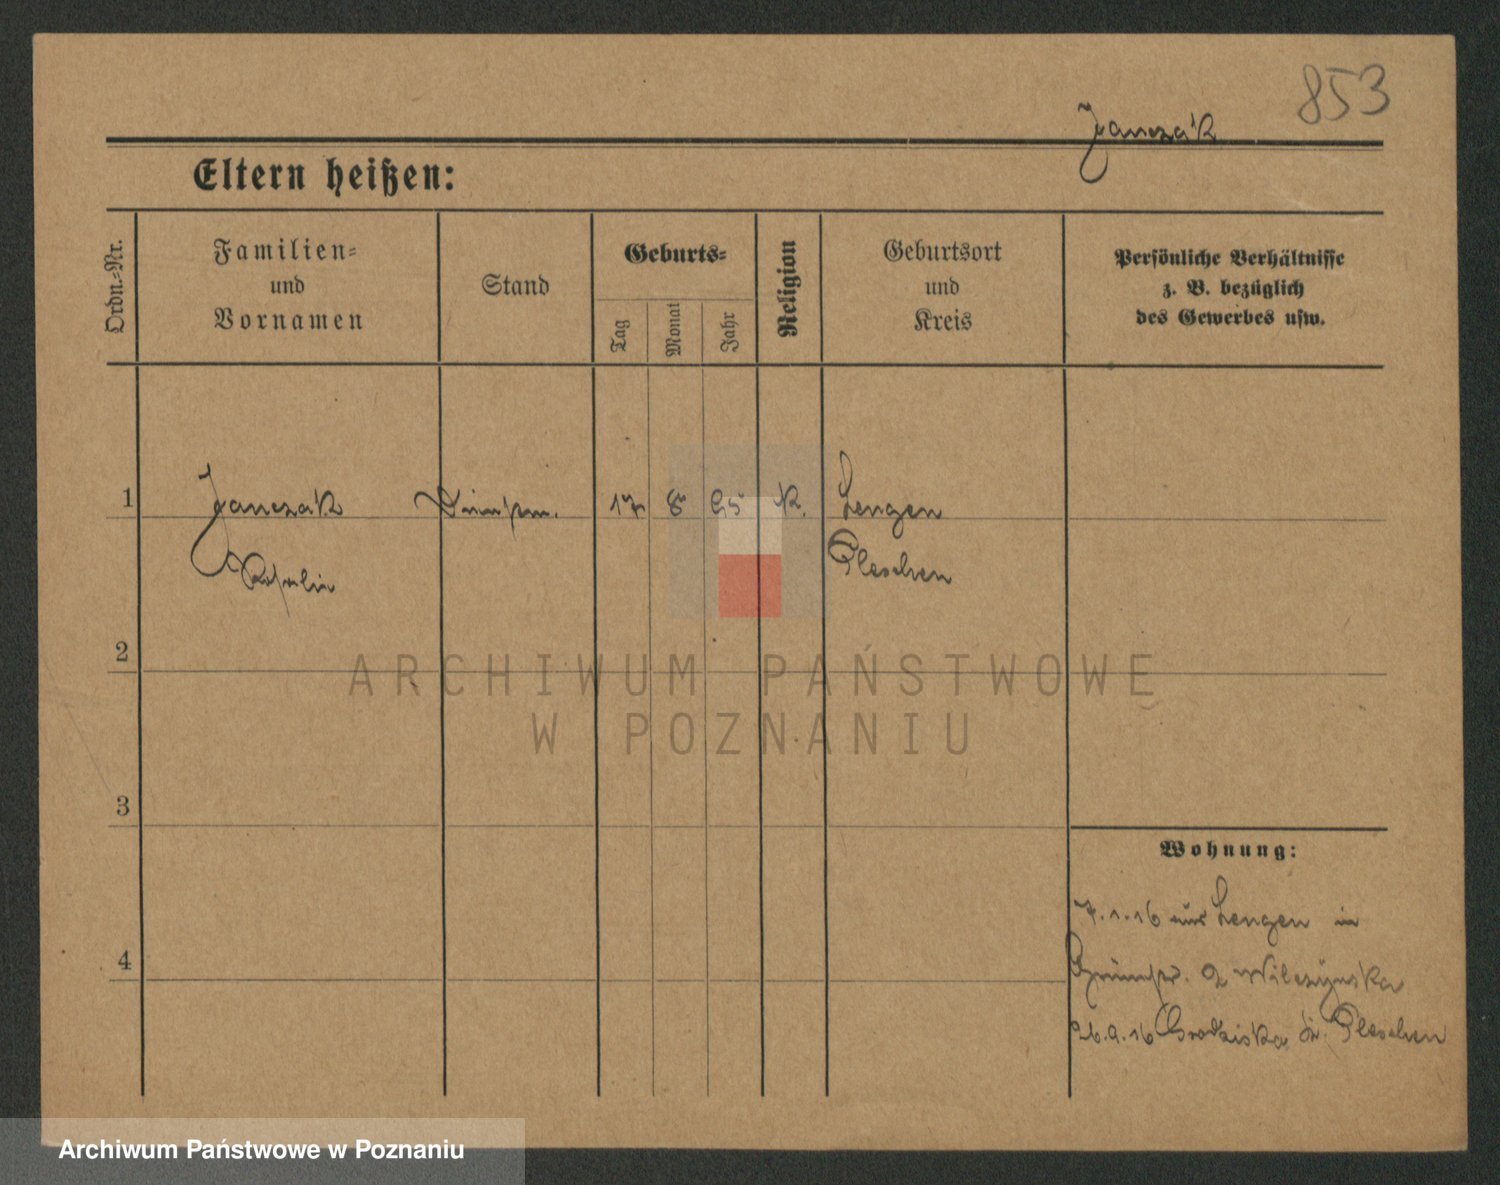 853
Janczak
Eltern heißen:
Ordn.-Nr.
Familien-
und
Vornamen
Stand
Geburts-
Tag
Monat
Jahr
Religion
Geburtsort
und
Kreis
Persönliche Verhältnisse
z. B. bezüglich
des Gewerbes usw.
1
Janczak
17
8
95
K.
Lengen
Pleschen
2
ARCHIWUM PAŃSTWOWE
W POZNANIU
3
Wohnung:
7.1.16 aus Lengen in
4
2 Wilczynska
26.9.16 Grodziska Kr. Pleschen
Archiwum Państwowe w Poznaniu